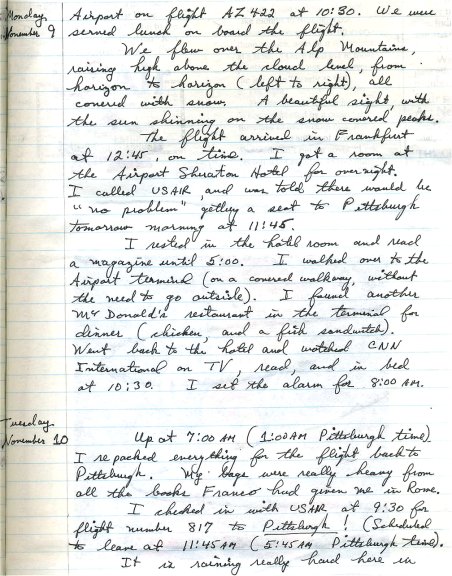 Monday
November 9
Airport on flight AZ422 at 10:30. We were
served lunch on board the flight.
We flew over the Alp Mountains,
raising high above the cloud level, from
horizon to horizon (left to right), all
covered with snow. A beautiful sight, with
the sun shinning on the snow covered peaks.
The flight arrived in Frankfurt
at 12:45, on time. I got a room at
the Airport Sheraton Hotel for overnight.
I called USAIR and was told there would be
"no problem" getting a seat to Pittsburgh
tomorrow morning at 11:45.
I rested in the hotel room and read
a magazine until 5:00. I walked over to the
Airport terminal (on a covered walkway, without
the need to go outside). I found another
McDonald's restaurant in the terminal for
dinner (chicken, and a fish sandwitch).
Went back to the hotel and watched CNN
International on TV, read, and in bed
at 10:30. I set the alarm for 8:00 AM.
Tuesday
November 10
Up at 7:00 AM (1:00AM Pittsburgh time).
I repacked everything for the flight back to
Pittsburgh. My bags were really heavy from
all the books Franco had given me in Rome.
I checked in with USAIR at 9:30 for
flight number 817 to Pittsburgh! (Scheduled
to leave at 11:45AM (5:45AM Pittsburgh time).
It is raining really hard here in